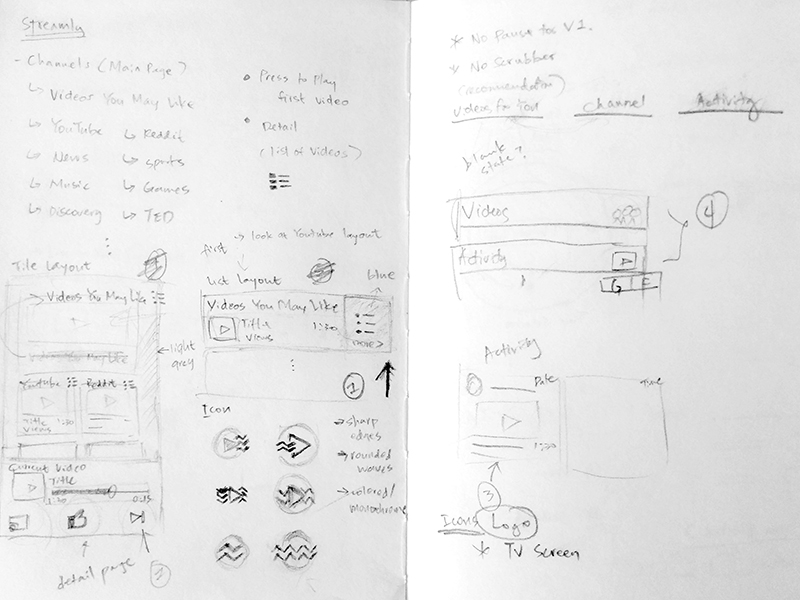 Streamly
- Channels (Main Page)
↳ Videos You May Like
↳ YouTube ↳ Reddit
↳ News ↳ sports
↳ Music ↳ Games
↳ Discovery ↳ TED
• Press to Play
first video
• Detail
(list of videos)
first → look at Youtube layout
Tile Layout
Videos You May Like
Videos You May Like
light
grey
Youtube Reddit
Title
views 1:30
Current Video
Title
1:30 0:15
detail page
List Layout
blue
Videos You May Like
Title 1:30
views
more >
1
Icon
→ sharp
edges
→ rounded
waves
→ colored/
monochrome
* No Pause for V1.
* No Scrubber
(recommendation)
Videos for You Channel Activity
blank
state?
Videos
Activity
G F
4
Activity
Date Time
1:30
3
Icons Logo
* TV Screen